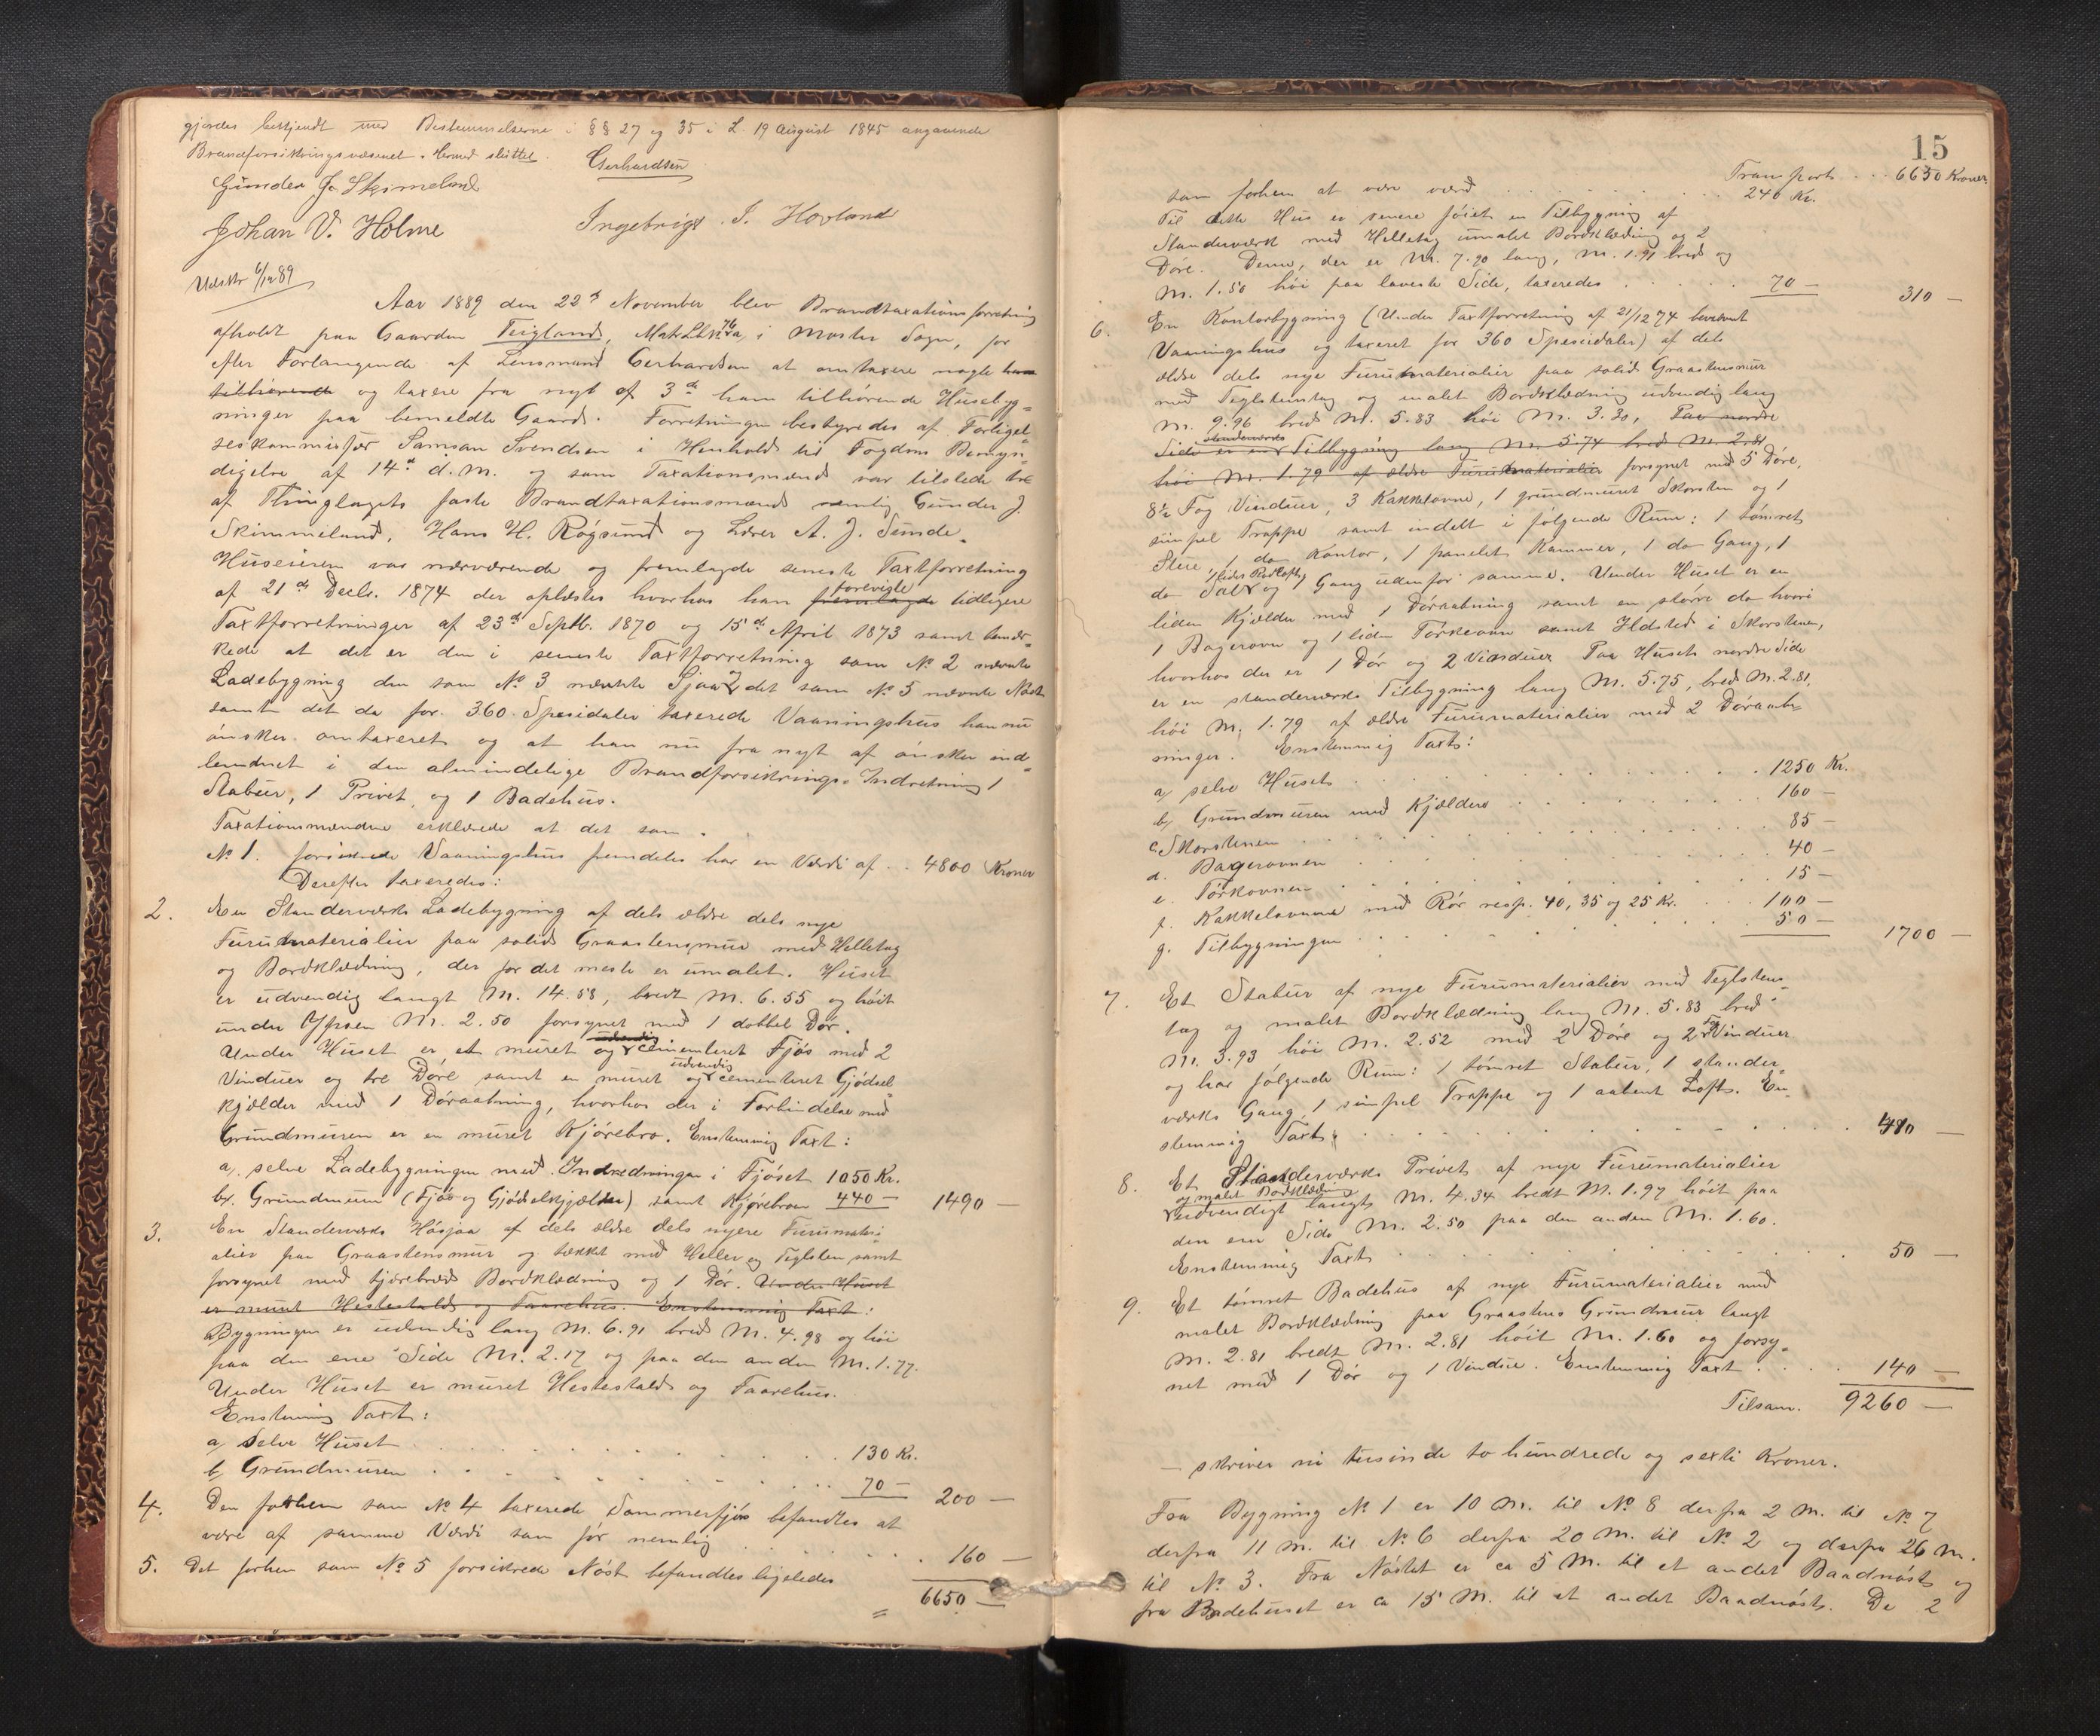 gjordes bekjendt med Bestemmelserne i §§ 27 og 35 i L. 19 August 1845 angaaende
Brandforsikringsvæsenet. Hermed sluttet.
Gerhardsen
Gunder J. Skimeland
Johan V. Holme
Ingebrigt I. Hovland
Udskr 6/12 89
Aar 1889 den 22de November blev Brandtaxationsforretning
afholdt paa Gaarden Teigland, i Moster Sogn, for
efter Forlangende af Lensmand Gerhardsen at omtaxere nogle ham
tilhørende og taxere fra nyt af 3de ham tilhørende Husebyg=
ninger paa bemeldte Gaard. Forretningen bestyredes af Forligel=
seskommissær Samson Svendsen i Henhold til Fogdens Bemyn=
digelse af 14de d. M. og som Taxationsmænd var tilstede tre
af Thinglagets faste Brandtaxationsmænd nemlig Gunder J.
Skimmeland, Hans H. Røgsund og Lærer A. J. Sunde.
Huseieren var nærværende og fremlagde seneste Taxtforretning
af 21de Decbr. 1874 der oplæstes hvorhos han fremlagde foreviste tidligere
Taxtforretninger af 23de Septb. 1870 og 15de April 1873 samt bemær=
kede at det er den i seneste Taxtforretning som No 2 nævnte
Ladebygning den som No 3 nævnte Sjaa og det som No 5 nævnte Nøst
samt det da for 360 Spesidaler taxerede Vaaningshus han nu
ønsker omtaxeret og at han nu fra nyt af ønsker ind=
lemmet i den almindelige Brandforsikrings-Indretning 1
Stabur, 1 Privet og 1 Badehus.
Taxationsmændene erklærede at det som
No 1. forsikrede Vaaningshus fremdeles har en Værdi af .. 4800 Kroner
Derefter taxeredes:
2. En Standerværks Ladebygning af dels ældre dels nye
Furumaterialier paa solid Graastensmur med Helletag
og Bordklædning, der for det meste er umalet. Huset
er udvendig langt M. 14.58, bredt M. 6.55 og høit
under Ufsen M. 2.50 forsynet med 1 dobbel Dør.
Under Huset er et muret og udvendig cementeret Fjøs med 2
Vinduer og tre Døre samt en muret og udvendig cementeret Gjødsel
kjælder med 1 Døraabning, hvorhos der i Forbindelse med
Grundmuren er en muret Kjørebro. Enstemmig Taxt:
a, selve Ladebygningen med Indredningen i Fjøset 1050 Kr.
b, Grundmuren (Fjøs og Gjødselkjælder) samt Kjørebroen 440 — 1490 —
3. En Standerværks Høsjaa af dels ældre dels nyere Furumateri=
alier paa Graastensmur og tækket med Heller og Teglsten samt
forsynet med tjærebræd Bordklædning og 1 Dør. Under Huset
er muret Hestestald og Faarehus. Enstemmig Taxt:
Bygningen er udvendig lang M. 6.91 bred M. 4.98 og høi
paa den ene Side M. 2.17 og paa den anden M. 1.77.
Under Huset er muret Hestestald og Faarehus.
Enstemmig Taxt:
a, Selve Huset . . . 130 Kr.
b, Grundmuren . . . 70 — 200 —
4. Den forhen som No 4 taxerede Sommerfjøs befandtes at
være af samme Værdi som før nemlig . . . 160 —
5. Det forhen som No 5 forsikrede Nøst befandtes ligeledes
6650 —
15
Transport . . . 6650 Kroner
som forhen at være værd . . . 240 Kr.
Til dette Hus er senere føiet en Tilbygning af
Standerværk med Helletag umalet Bordklædning og 2
Døre. Denne, der er M. 7.90 lang, M. 1.91 bred og
M. 1.50 høi paa laveste Side, taxeredes . . . 70 — 310 —
6. En Kontorbygning (Under Taxtforretning af 21/12 74 benævnt
Vaaningshus og taxeret for 360 Spesidaler) af dels
ældre dels nye Furumaterialier paa solid Graastensmur
med Teglstenstag og malet Bordklædning udvendig lang
M. 9.96 bred M. 5.83 høi M. 3.30, Paa nordre
Side er en standerværks Tilbygning lang M. 5.74 bred M. 2.81
høi M. 1.79 af ældre Furumaterialier forsynet med 5 Døre,
8½ Fag Vinduer, 3 Kakkelovne, 1 grundmuret Skorsten og 1
simpel Trappe samt indelt i følgende Rum: 1 tømret
Stue, 1 do Kontor, 1 panelet Kammer, 1 do Gang, 1
do Sal og 1 Gang udenfor samme. Under Huset er en
liden Kjælder med 1 Døraabning samt en større do hvori
1 Bagerovn og 1 liden Tørkeovn samt Ildsted i Skorstenen,
hvorhos der er 1 Dør og 2 Vinduer Paa Husets nordre Side
er en standerværks Tilbygning lang M. 5.75, bred M. 2.81,
høi M. 1.79 af ældre Furumaterialier med 2 Døraab=
ninger. Enstemmig Taxt:
a, selve Huset . . . 1250 Kr.
b, Grundmuren med Kjældere . . . 160 —
c, Skorstenen . . . 85 —
d. Bagerovnen . . . 40 —
e. Tørkovnen . . . 15 —
f. Kakkelovnene med Rør resp. 40, 35 og 25 Kr. . . . 100 —
g. Tilbygningen . . . 50 — 1700 —
7. Et Stabur af nye Furumaterialier med Teglstens=
tag og malet Bordklædning lang M. 5.83 bred
M. 3.93 høi M. 2.52 med 2 Døre og 2 Fag Vinduer
og har følgende Rum: 1 tømret Stabur, 1 stander=
værks Gang, 1 simpel Trappe og 1 aabent Loft. En=
stemmig Taxt: . . . 410 —
8. Et Standerværks Privet af nye Furumaterialier
og malet Bordklædning
udvendigt langt M. 4.34 bredt M. 1.97 høit paa
den ene Side M. 2.50 paa den anden M. 1.60.
Enstemmig Taxt . . . 50 —
9. Et tømret Badehus af nye Furumaterialier med
malet Bordklædning paa Graastens Grundmur langt
M. 2.81 bredt M. 2.81 høit M. 1.60 og forsy=
net med 1 Dør og 1 Vindue. Enstemmig Taxt . . . 140 —
Tilsam. 9260 —
— skriver ni tusinde to hundrede og sexti Kroner.
Fra Bygning No 1 er 10 M. til No 8 derfra 2 M. til No 7
derfra 11 M. til No 6 derfra 20 M. til No 2 og derfra 26 M.
til No 3. Fra Nøstet er ca 5 M. til et andet Baadnøst og
fra Badehuset er ca 15 M. til et andet Baadnøst. De 2